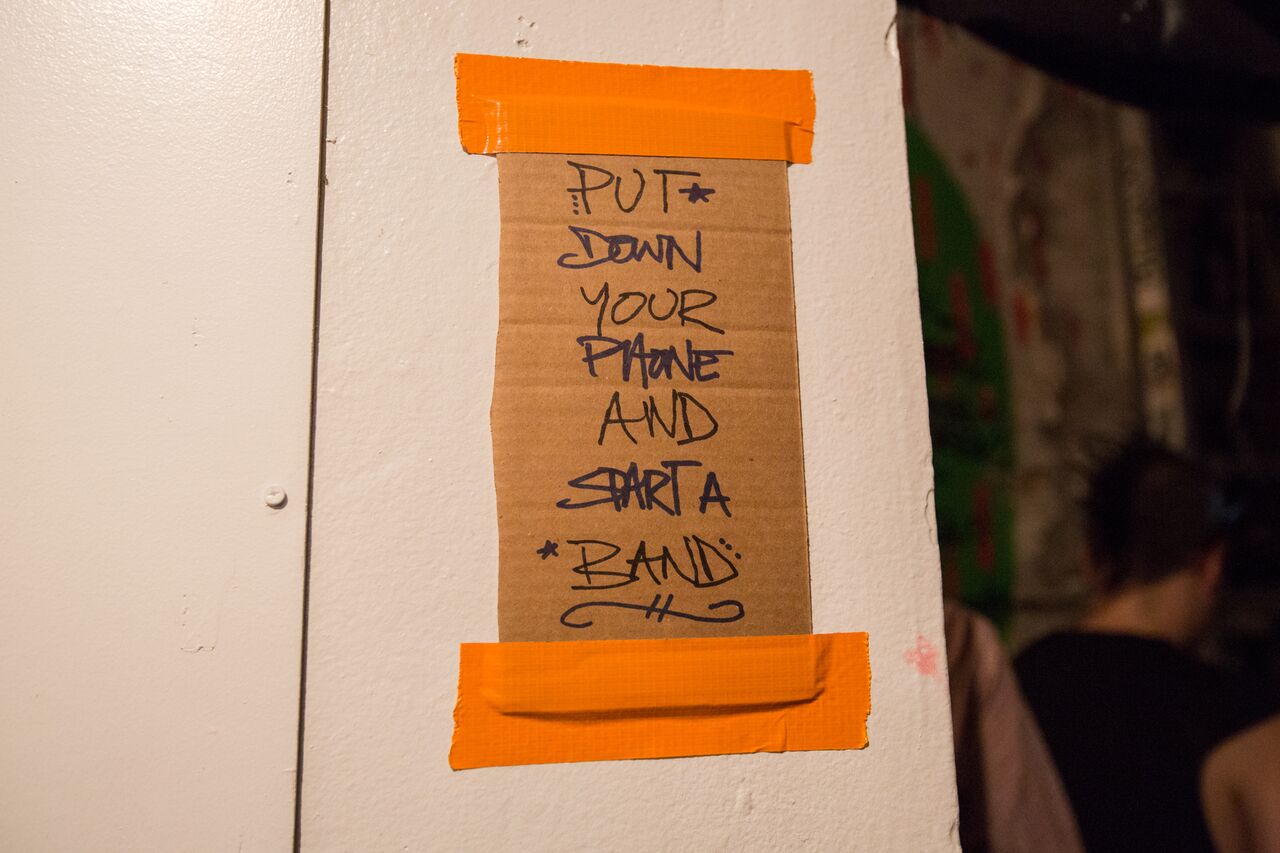 PUT
DOWN
YOUR
PHONE
AND
START A
BAND